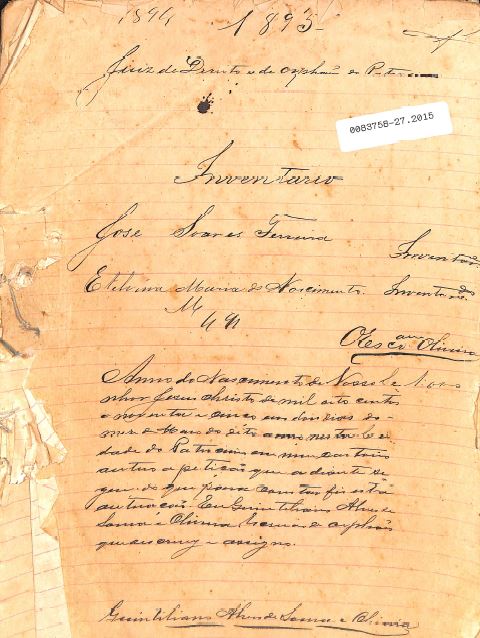 1894 1895
Juiz de Direito e de orphãos do
0083758-27.2015
Inventario
José Soares Ferreira
Inventar
Maria do Nascimento. Inventar do
M
Oliveira
Anno do Nascimento de Nosso Se
nhor Jesus Christo de mil oito centos
e noventa e cinco aos dois dias do
mez de Maio do dito
dade do Patrocinio em meu cartorio
autuo a petição que a diante se
gue. do que para constar fis esta
autuação. Eu Quintiliano Alves de
Souza e Oliveira Escrivão de orphãos
que escrevy e assigno.
Quintiliano Alves de Souza e Oliveira